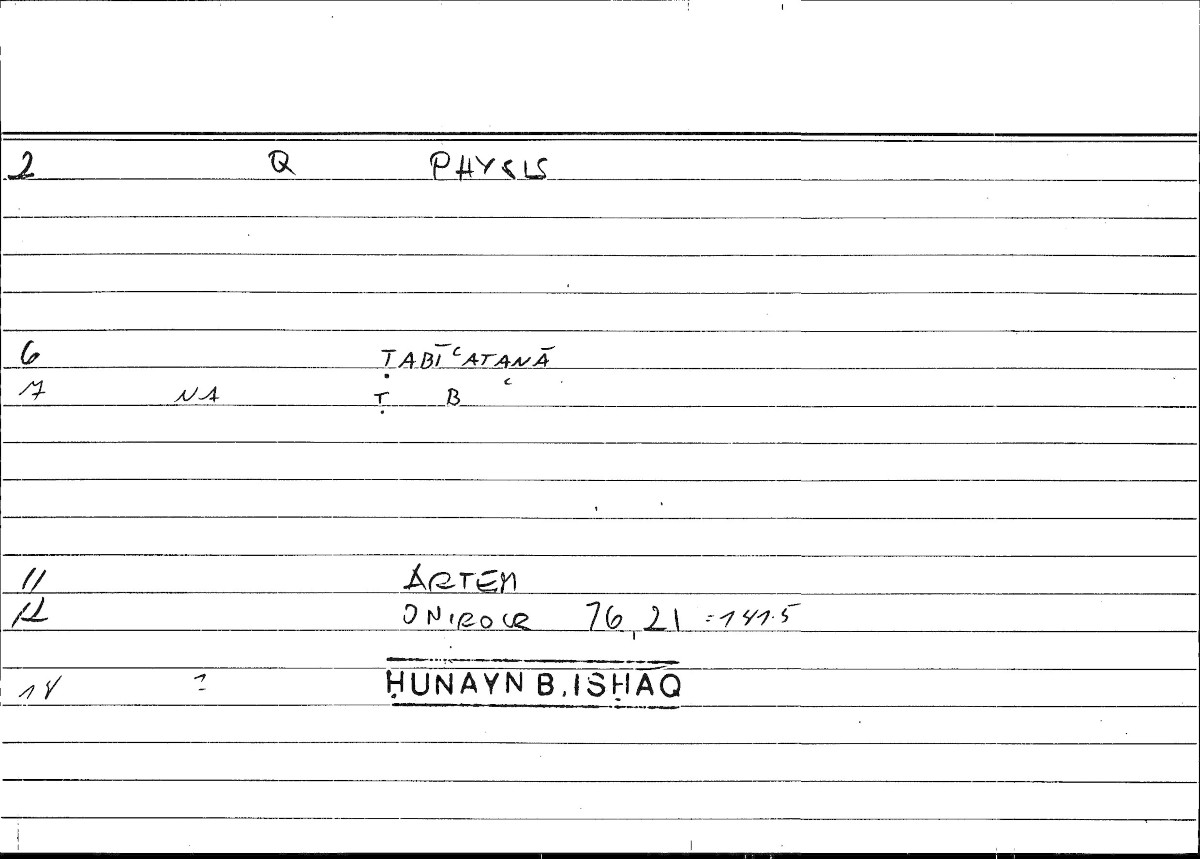 2 Q PHYSIS
6 ṬABĪʿATANĀ
7 NA Ṭ B ʿ
11 ARTEM
12 ONIROCR 76,21 =141.5
14 ? ḤUNAYN B. ISḤĀQ